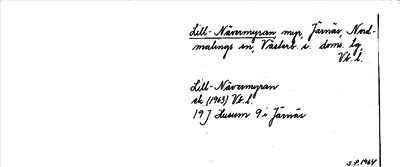 Lill-Nävermyran, myr, Järnäs, Nord-
malings sn, Västerb. s. doms. lg,
Vb. l.
Lill-Nävermyran
ek (1963) Vb. l.
19 J Husum 9 i Järnäs
S.P. 1964